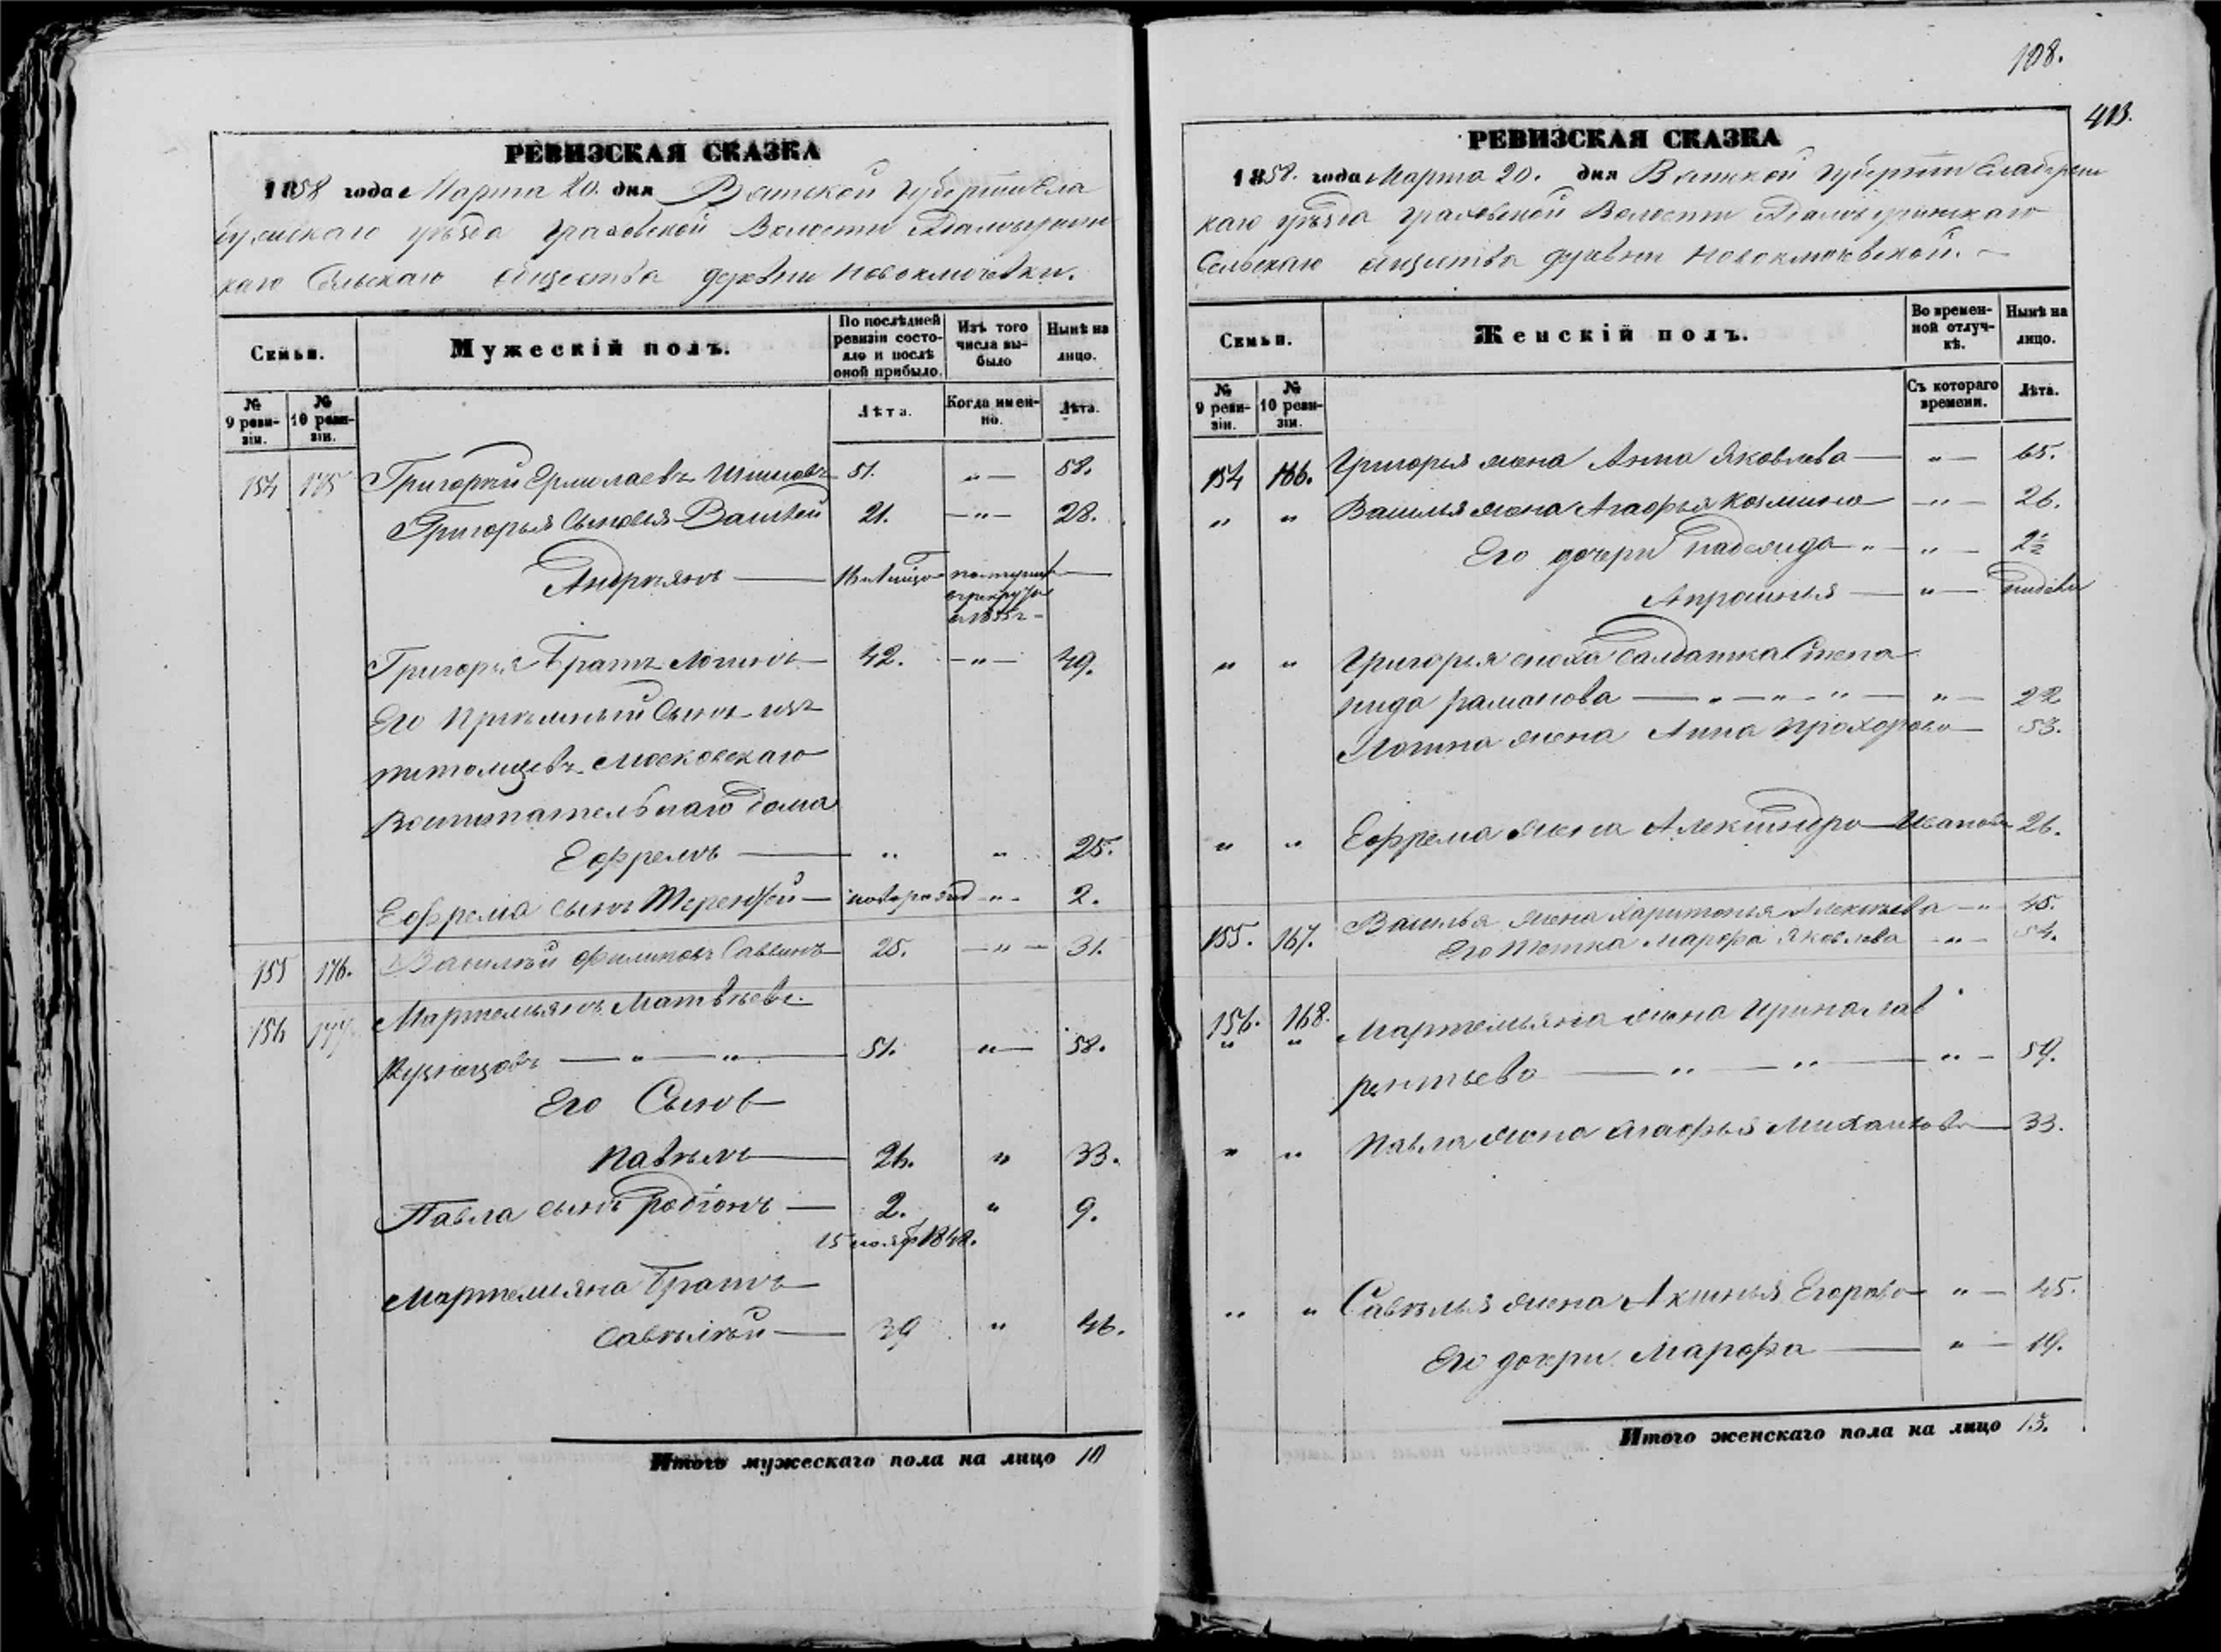 РЕВИЗСКАЯ СКАЗКА
1858 года Марта 20. дня Вятской губернiи Ела
бужскаго уѣзда Граховской Волости
каго Сельскаго общества деревни Новоключевки.
Семьи.
Мужескiй полъ.
По послѣдней ревизiи состояло и послѣ оной прибыло.
Изъ того числа выбыло
Нынѣ на лицо.
№ 9 ревизiи.
№ 10 ревизiи.
Лѣта.
Когда именно.
Лѣта.
154 175 Григорiй Ермилаевъ Шишовъ 51. „ 58.
Григорья сыновья Василей 21. „ 28.
Андреянъ 16
в рекруты
в 1855 г
Григорья братъ Логинъ 42. „ 49.
Его прiемный сынъ изъ
питомцевъ Московскаго
Воспитательнаго дома
Ефремъ „ „ 25.
Ефрема сынъ Терентей новорожд „ 2.
155 176. Василiй Филиповъ Саввинъ 25. „ 31.
156 177 Мартемьянъ Матвѣевъ
Кузнецовъ „ „ 51. „ 58.
Его Сынъ
Павелъ 26. „ 33.
Павла сынъ Родiонъ 2. „ 9.
15 нояб 1848.
Мартемияна братъ
Савелiй 39 „ 46.
Итого мужескаго пола на лицо 10
108.
413.
РЕВИЗСКАЯ СКАЗКА
1858. года Марта 20. дня Вятской губернiи Елабужс
каго уѣзда Граховской Волости
Сельскаго общества деревни Новоключевской.
Семьи.
Женскiй полъ.
Во временной отлучкѣ.
Нынѣ на лицо.
№ 9 ревизiи.
№ 10 ревизiи.
Съ котораго времени.
Лѣта.
154 166. Григорья жена Анна Яковлева „ 65.
„ „ Василья жена Агафья Козмина „ 26.
Его дочери Надежида „ „ 2½
Апросинья „ недѣли
„ „ Григорья сноха Салдатка Степа
нида Раманова „ „ „ „ 22
Логина жена Анна Прохорова 53.
„ „ Ефрема жена Александра Иванова 26.
155. 167. Василья жена Харитонья Алексѣева „ 45.
Его тетка Марфа Яковлева „ 54.
156. 168. Мартемьяна жена Ирина Лав
„ „ рентьева „ „ „ 59.
„ „ Павла жена Агафья Михаилова 33.
„ „ Савелья жена Аксинья Егорова „ 45.
Его дочери Марфа „ 19.
Итого женскаго пола на лицо 13.